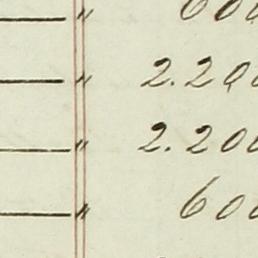 " 600
" 2.200
" 2.200
" 600